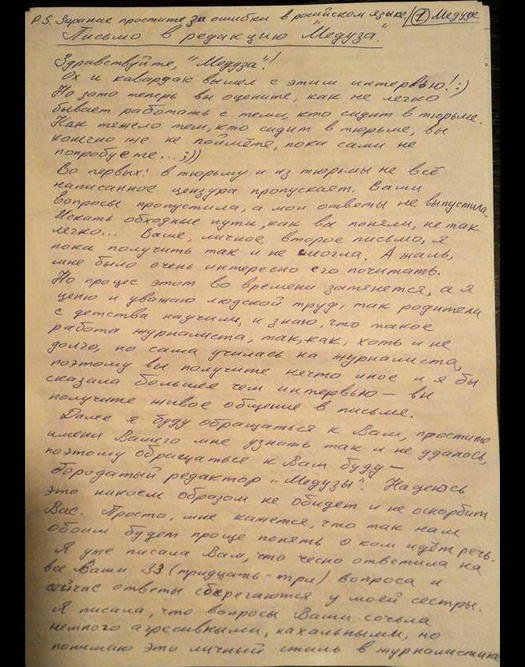 P.S. Заранее простите за ошибки в російском языке/ 1 Медузе
Письмо в редакцию "Медуза"
Здравствуйте, "Медуза"!
Ох и кавардак вышел с этим интервью! :)
Но зато теперь вы оцените, как не легко
бывает работать с теми, кто сидит в тюрьме.
Как тяжело тем, кто сидит в тюрьме, вы
конечно же не поймёте, пока сами не
попробуете...;))
Во первых: в тюрьму и из тюрьмы не всё
написанное цензура пропускает. Вами
вопросы пропустила, а мои ответы не выпустила.
Искать обходные пути, как вы поняли, не так
легко... Ваше, личное, второе письмо, я
пока получить так и не смогла. А жаль,
мне было очень интересно его почитать.
Но процес этот во времени затянется, а я
ценю и уважаю людской труд, так родители
с детства научили, и знаю, что такое
работа журналиста, так, как, хоть и не
долго, но сама училась на журналиста,
поэтому вы получите нечто иное и я бы
сказала большее чем интервью – вы
получите живое общение в письме.
Далее я буду обращаться к Вам, простите
имени Вашего мне узнать так и не удалось,
поэтому обращаться к Вам буду –
бородатый редактор "Медузы". Надеюсь
это никоем образом не обидет и не оскорбит
Вас. Просто, мне кажется, что так нам
обоим будет проще понять о ком идёт речь.
Я уже писала Вам, что чесно ответила на
все Ваши 33 (тридцать-три) вопроса и
сейчас ответы сберегаются у моей сестры.
Я писала, что вопросы Вами сочла
немного агресивными, нахальными, но
понимаю это личный стиль в журналистике